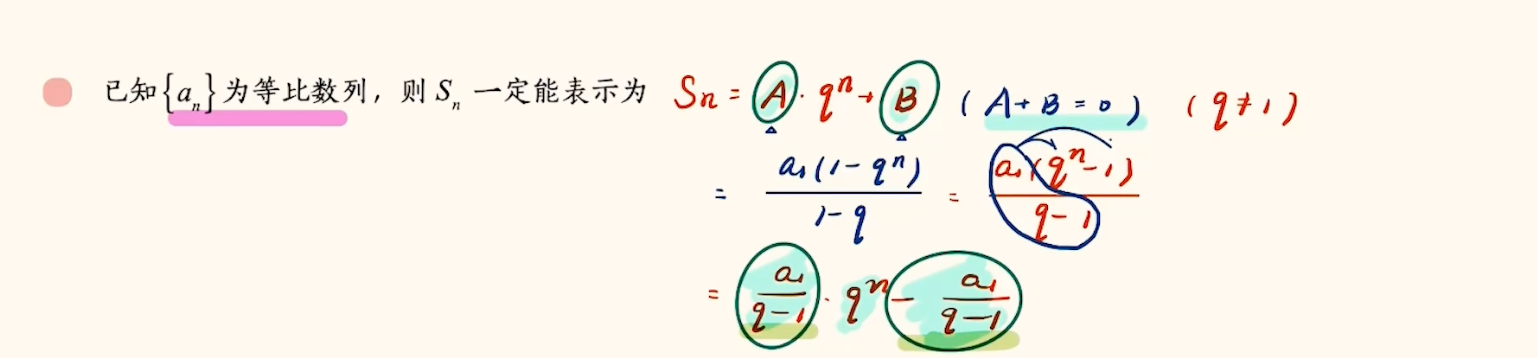 已知{aₙ}为等比数列，则 Sₙ 一定能表示为 Sn = A · qⁿ + B (A + B = 0) (q ≠ 1)
= a₁(1 - qⁿ) / 1 - q = a₁(qⁿ - 1) / q - 1
= a₁ / q - 1 · qⁿ - a₁ / q - 1